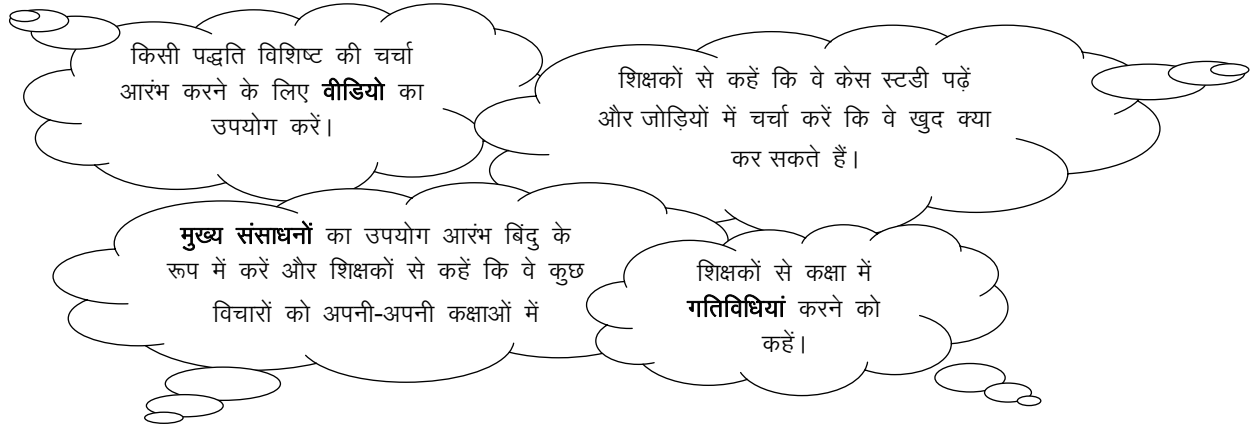 किसी पद्धति विशिष्ट की चर्चा
आरंभ करने के लिए वीडियो का
उपयोग करें।
शिक्षकों से कहें कि वे केस स्टडी पढ़ें
और जोड़ियों में चर्चा करें कि वे खुद क्या
कर सकते हैं।
मुख्य संसाधनों का उपयोग आरंभ बिंदु के
रूप में करें और शिक्षकों से कहें कि वे कुछ
विचारों को अपनी-अपनी कक्षाओं में
शिक्षकों से कक्षा में
गतिविधियां करने को
कहें।